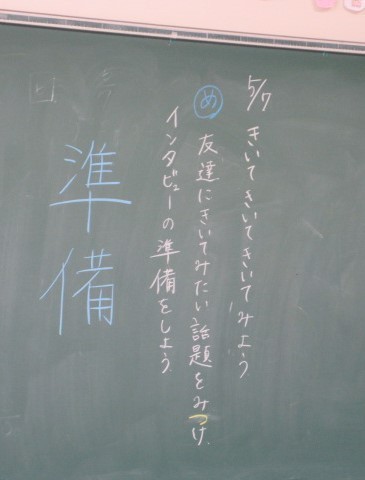 5/7 きいてきいてきいてみよう
め 友達にきいてみたい話題をみつけ、
インタビューの準備をしよう。
準備